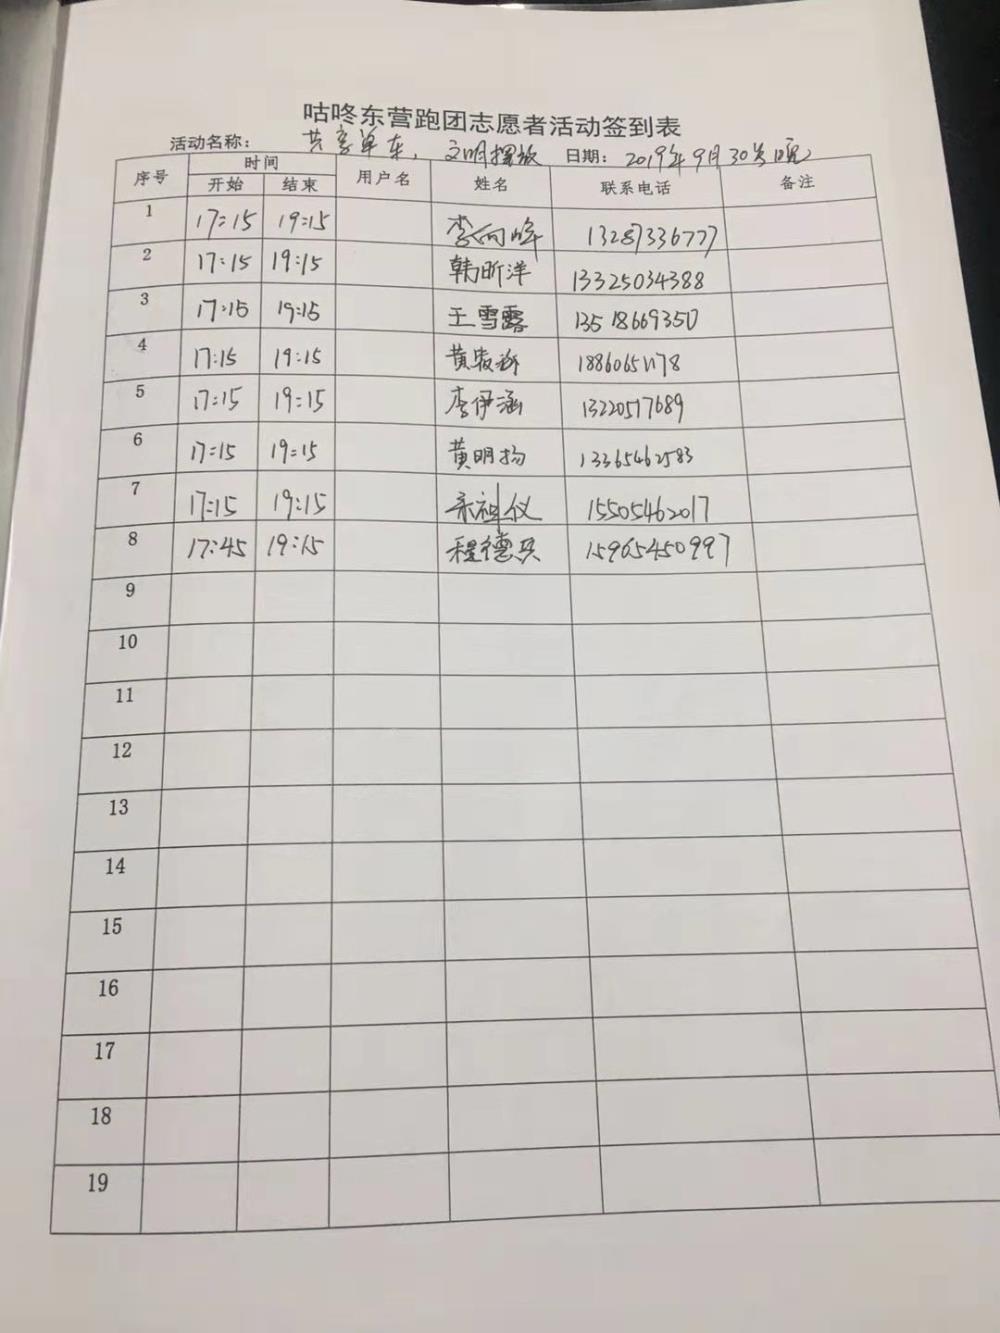 咕咚东营跑团志愿者活动签到表
活动名称： 共享单车，文明摆放 日期： 2019年9月30号(晚)
序号 时间 用户名 姓名 联系电话 备注
开始 结束
1 17:15 19:15 李向峰 13287336777
2 17:15 19:15 韩昕洋 13325034388
3 17:15 19:15 王雪露 13518669350
4 17:15 19:15 18860651178
5 17:15 19:15 李伊涵 13220517689
6 17:15 19:15 黄明扬 13365462583
7 17:15 19:15 15505462017
8 17:45 19:15 程德兵 15965450997
9
10
11
12
13
14
15
16
17
18
19